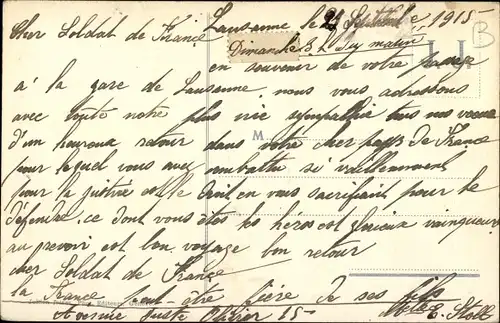 Cher Soldat de France Lausanne le 2 Septembre 1915
Dimanche
en souvenir de votre passage
à la gare de Lausanne, nous vous adressons
avec toute notre plus vive sympathie tous nos voeux
d'un heureux retour dans votre cher pays de France
M
pour lequel vous avez combattu si vaillemment
pour la justice et le droit en vous sacrifiant pour le
défendre, ce dont vous êtes les héros et glorieux vainqueurs
au revoir et bon voyage bon retour
cher Soldat de France
la France peut-être fière de ses fils
Avenue Juste Olivier 15 - E. Stoll